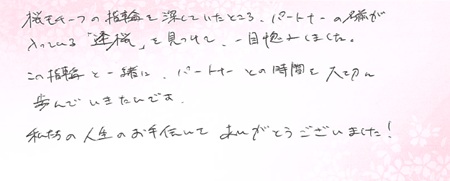 桜モチーフの指輪を探していたところ、パートナーの名が
入っている「連桜」を見つけて、一目惚れしました。
この指輪と一緒に、パートナーとの時間を大切に
歩んでいきたいです。
私たちの人生のお手伝いして ありがとうございました！